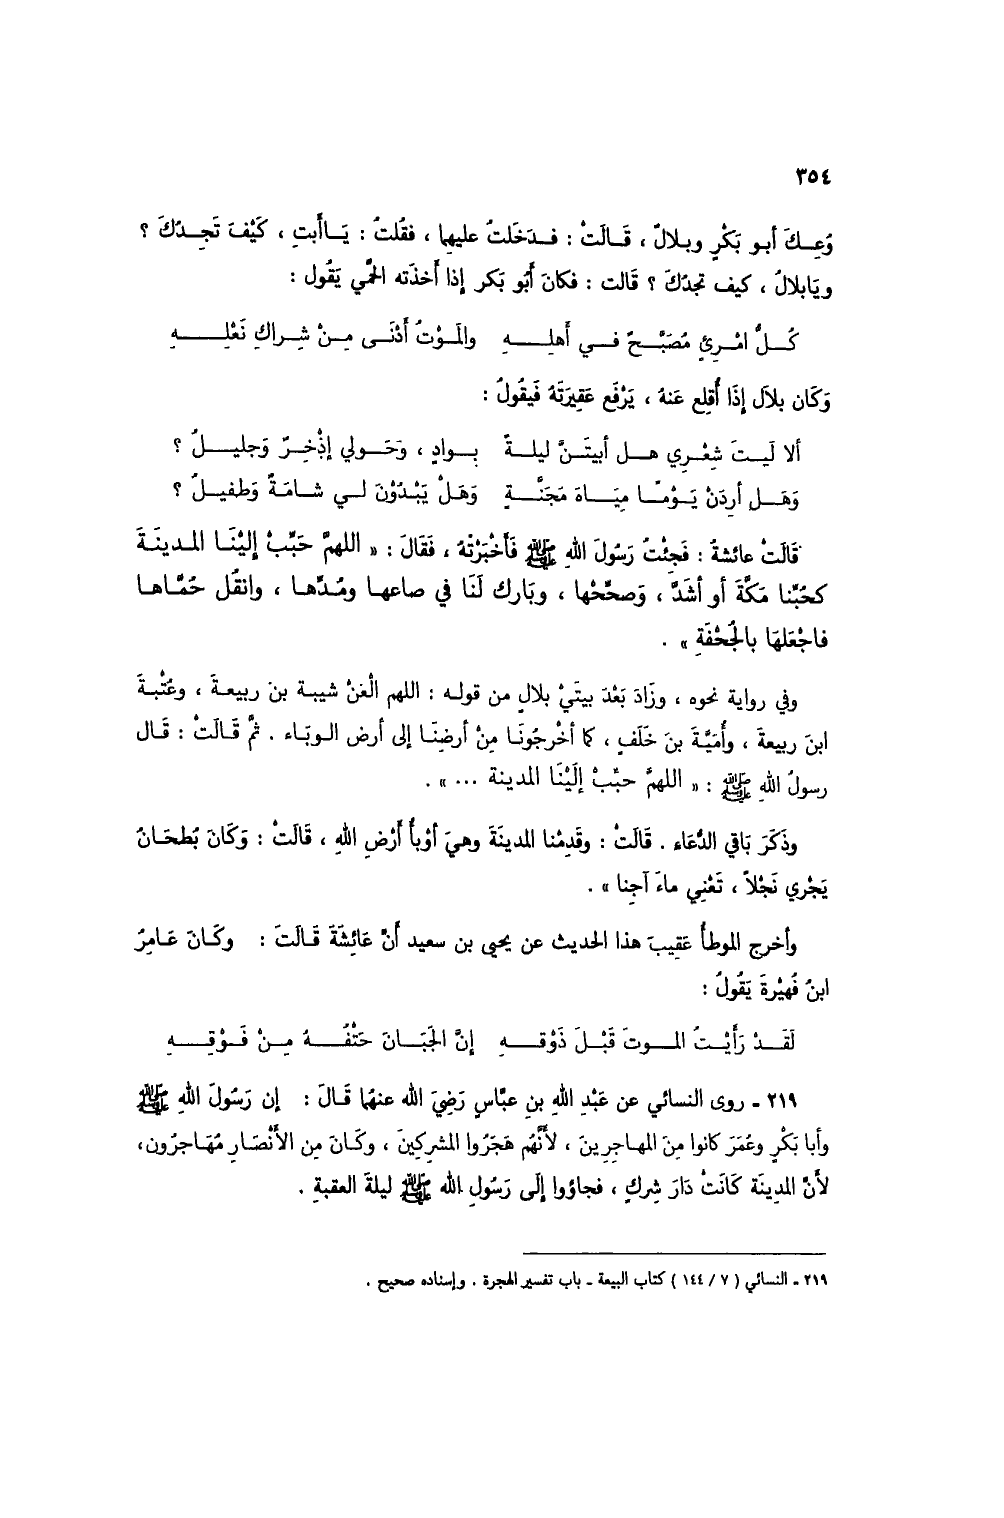 ٣٥٤
وُعِـكَ أبـو بَكْرٍ وبـلالٌ ، قَـالَتْ : فـدَخَلَتُ عليها ، فقُلتُ : يَـاأَبتِ ، كَيْفَ تَجـدُكَ ؟
ويَابلالُ ، كيف تجدُكَ ؟ قَالت : فكانَ أَبُو بَكر إذا أَخذَته الحمَّي يَقُول :
كُـلُّ امْـرِئٍ مُصَبَّـحٌ فـي أَهلِـهِ والمَـوْتُ أدْنَـى مِـنْ شِـراكِ نَعْلِـهِ
وَكَان بلاَل إذَا أُقلِع عَنهُ ، يَرْفَع عَقِيرَتَهُ فَيقُولُ :
ألا لَيـتَ شِعْـري هـل أبيتَـنَّ ليلـةً بـوادٍ ، وَحَـولي إذْخِـرٌ وَجليـلُ ؟
وَهَـل أرِدَنْ يَـوْمًـا مِيَـاهَ مَجَنَّـةٍ وَهَلْ يَبْدُوْنَ لـي شـامَةٌ وَطفيـلُ ؟
قَالَتْ عائشةُ : فَجِئْتُ رَسُولَ اللهِ ﷺ فَأَخْبَرْتْهُ ، فَقَالَ : « اللهمَّ حَبِّبْ إليْنَـا المـدينَـةَ
كحُبِّنا مَكَّةَ أو أشَدَّ ، وَصحِّحْها ، وبَارك لَنَا في صاعهـا ومُـدِّهـا ، وانقُل حُمَّاهـا
فاجْعَلهَا بالجُحْفَةِ » .
وفي رواية نحوه ، وزَادَ بَعْدَ بيتَيْ بلالٍ من قولـه : اللهم الْعَنْ شيبـة بنَ ربيعـةَ ، وعُتْبـةَ
ابنَ ربيعةَ ، وأُمَيَّـةَ بنَ خَلَفٍ ، كما أخْرجُونَـا مِنْ أرضِنَـا إلى أرض الـوبَـاء . ثمَّ قَـالَتْ : قَـال
رسولُ اللهِ ﷺ : « اللهمَّ حبِّبْ إلَيْنَا المدينة ... » .
وذَكَرَ بَاقي الدُّعَاء . قَالَتْ : وقَدِمْنا المدينَةَ وهيَ أوْبأُ أَرْضِ اللهِ ، قَالَتْ : وَكَانَ بُطحَانُ
يَجْري نَجْلاً ، تَعْنِي ماءً آجِنا » .
وأخرج الموطأ عَقِيبَ هذا الحديث عن يحيى بن سعيد أَنَّ عَائِشَةَ قَـالَتَ : وكَـانَ عَـامِرُ
ابنُ فُهيْرةَ يَقُولُ :
لَقَـدْ رَأَيْـتُ المـوتَ قَبْـلَ ذَوْقـهِ إنَّ الجَبَـانَ حَتْفُـهُ مِـنْ فَـوْقِـهِ
٢١٩ ـ روى النسائي عن عَبْدِ اللهِ بنِ عبَّاسٍ رَضِيَ الله عنهُما قَـالَ : إن رَسُولَ اللهِ ﷺ
وأبا بَكْرٍ وعُمَرَ كانوا مِنَ المهـاجِرِينَ ، لأَنَّهُم هَجَرُوا المشرِكينَ ، وكَـانَ مِن الأَنْصَـارِ مُهَـاجرُون،
لأَنَّ المدِينَة كَانَتْ دَارَ شِركٍ ، فجاؤوا إلَى رَسُولِ الله ﷺ ليلةَ العقبةِ .
٢١٩ ـ النسائي ( ٧ / ١٤٤ ) كتاب البيعة ـ باب تفسير الهجرة . وإسناده صحيح .